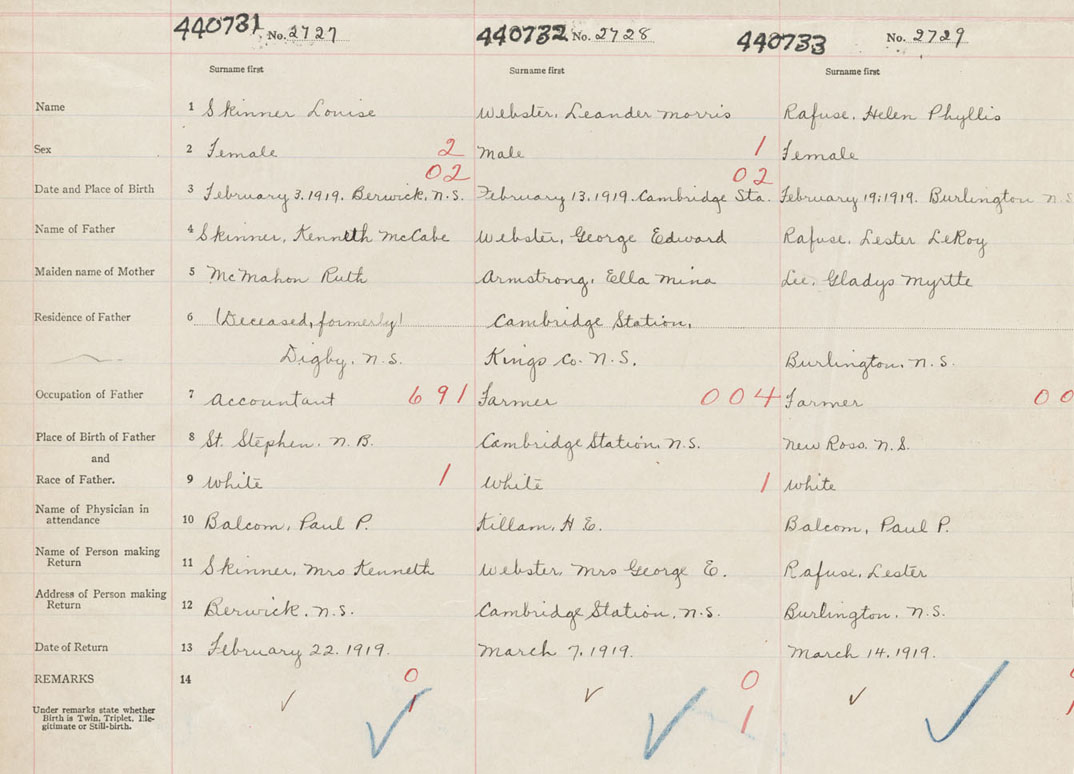 440731 No. 2727 440732 No. 2728 440733 No. 2729
Surname first Surname first Surname first
Name 1 Skinner Louise Webster, Leander Morris Rafuse, Helen Phyllis
Sex 2 Female 2 Male 1 Female
02 02
Date and Place of Birth 3 February 3, 1919. Berwick, N.S. February 13, 1919. Cambridge Sta. February 19, 1919. Burlington N.S
Name of Father 4 Skinner, Kenneth McCabe Webster, George Edward Rafuse, Lester LeRoy
Maiden name of Mother 5 McMahon Ruth Armstrong, Ella Mina Lee, Gladys Myrtte
Residence of Father 6 (Deceased, formerly) Cambridge Station,
Digby, N.S. Kings Co. N.S. Burlington, N.S.
Occupation of Father 7 Accountant 691 Farmer 004 Farmer 00
Place of Birth of Father 8 St. Stephen, N.B. Cambridge Station, N.S. New Ross, N.S.
and
Race of Father. 9 White 1 White 1 White
Name of Physician in
attendance 10 Balcom, Paul P. Killam, H E. Balcom, Paul P.
Name of Person making
Return 11 Skinner, Mrs Kenneth Webster, Mrs George E. Rafuse, Lester
Address of Person making
Return 12 Berwick, N.S. Cambridge Station, N.S. Burlington, N.S.
Date of Return 13 February 22, 1919. March 7, 1919. March 14, 1919.
REMARKS 14 0 0
Under remarks state whether 1 1
Birth is Twin, Triplet, Ille-
gitimate or Still-birth.